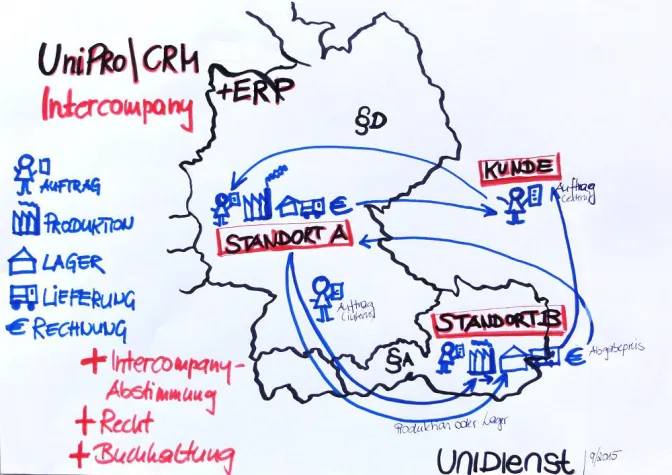 UniPRo|CRM
+ERP
Intercompany
§D
KUNDE
Auftrag
(extern)
AUFTRAG
PRODUKTION
LAGER
LIEFERUNG
€ RECHNUNG
€
STANDORT A
Auftrag
(intern)
STANDORT B
€
Abgabepreis
§A
Produktion oder Lager
+ Intercompany-
Abstimmung
+ Recht
+ Buchhaltung
UNiDienst | 9/2015